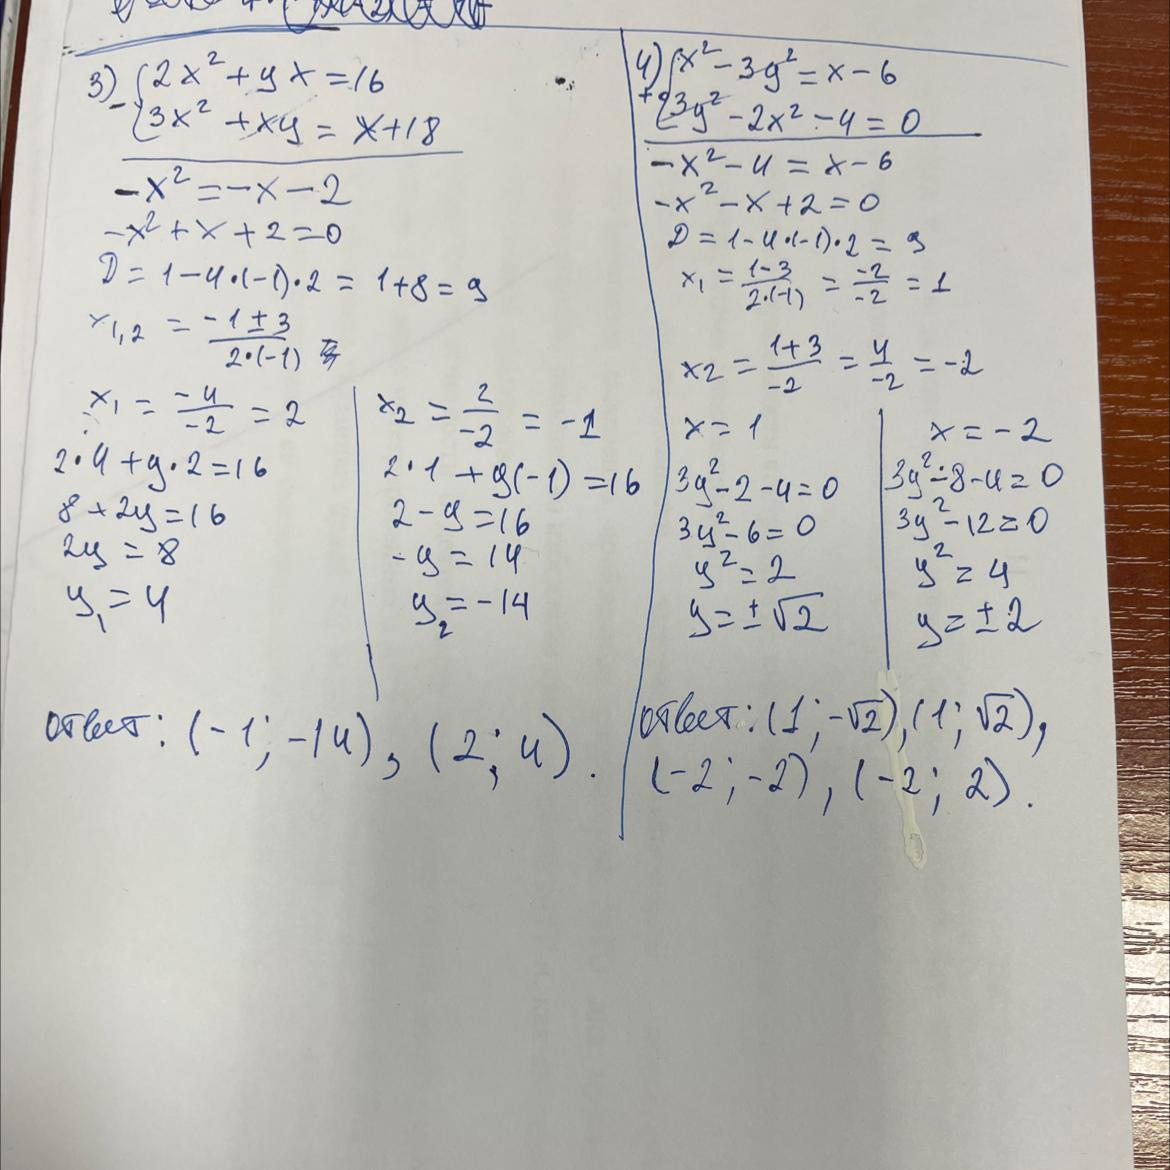 3) - { 2x² + yx = 16
3x² + xy = x + 18
-x² = -x - 2
-x² + x + 2 = 0
D = 1 - 4·(-1)·2 = 1 + 8 = 9
x₁,₂ = (-1 ± 3) / (2·(-1))
x₁ = -4 / -2 = 2
2·4 + y·2 = 16
8 + 2y = 16
2y = 8
y₁ = 4
x₂ = 2 / -2 = -1
2·1 + y(-1) = 16
2 - y = 16
-y = 14
y₂ = -14
Ответ: (-1; -14), (2; 4).
4) + { x² - 3y² = x - 6
3y² - 2x² - 4 = 0
-x² - 4 = x - 6
-x² - x + 2 = 0
D = 1 - 4·(-1)·2 = 9
x₁ = (1 - 3) / (2·(-1)) = -2 / -2 = 1
x₂ = (1 + 3) / -2 = 4 / -2 = -2
x = 1
3y² - 2 - 4 = 0
3y² - 6 = 0
y² = 2
y = ± √2
x = -2
3y² - 8 - 4 = 0
3y² - 12 = 0
y² = 4
y = ± 2
Ответ: (1; -√2), (1; √2),
(-2; -2), (-2; 2).